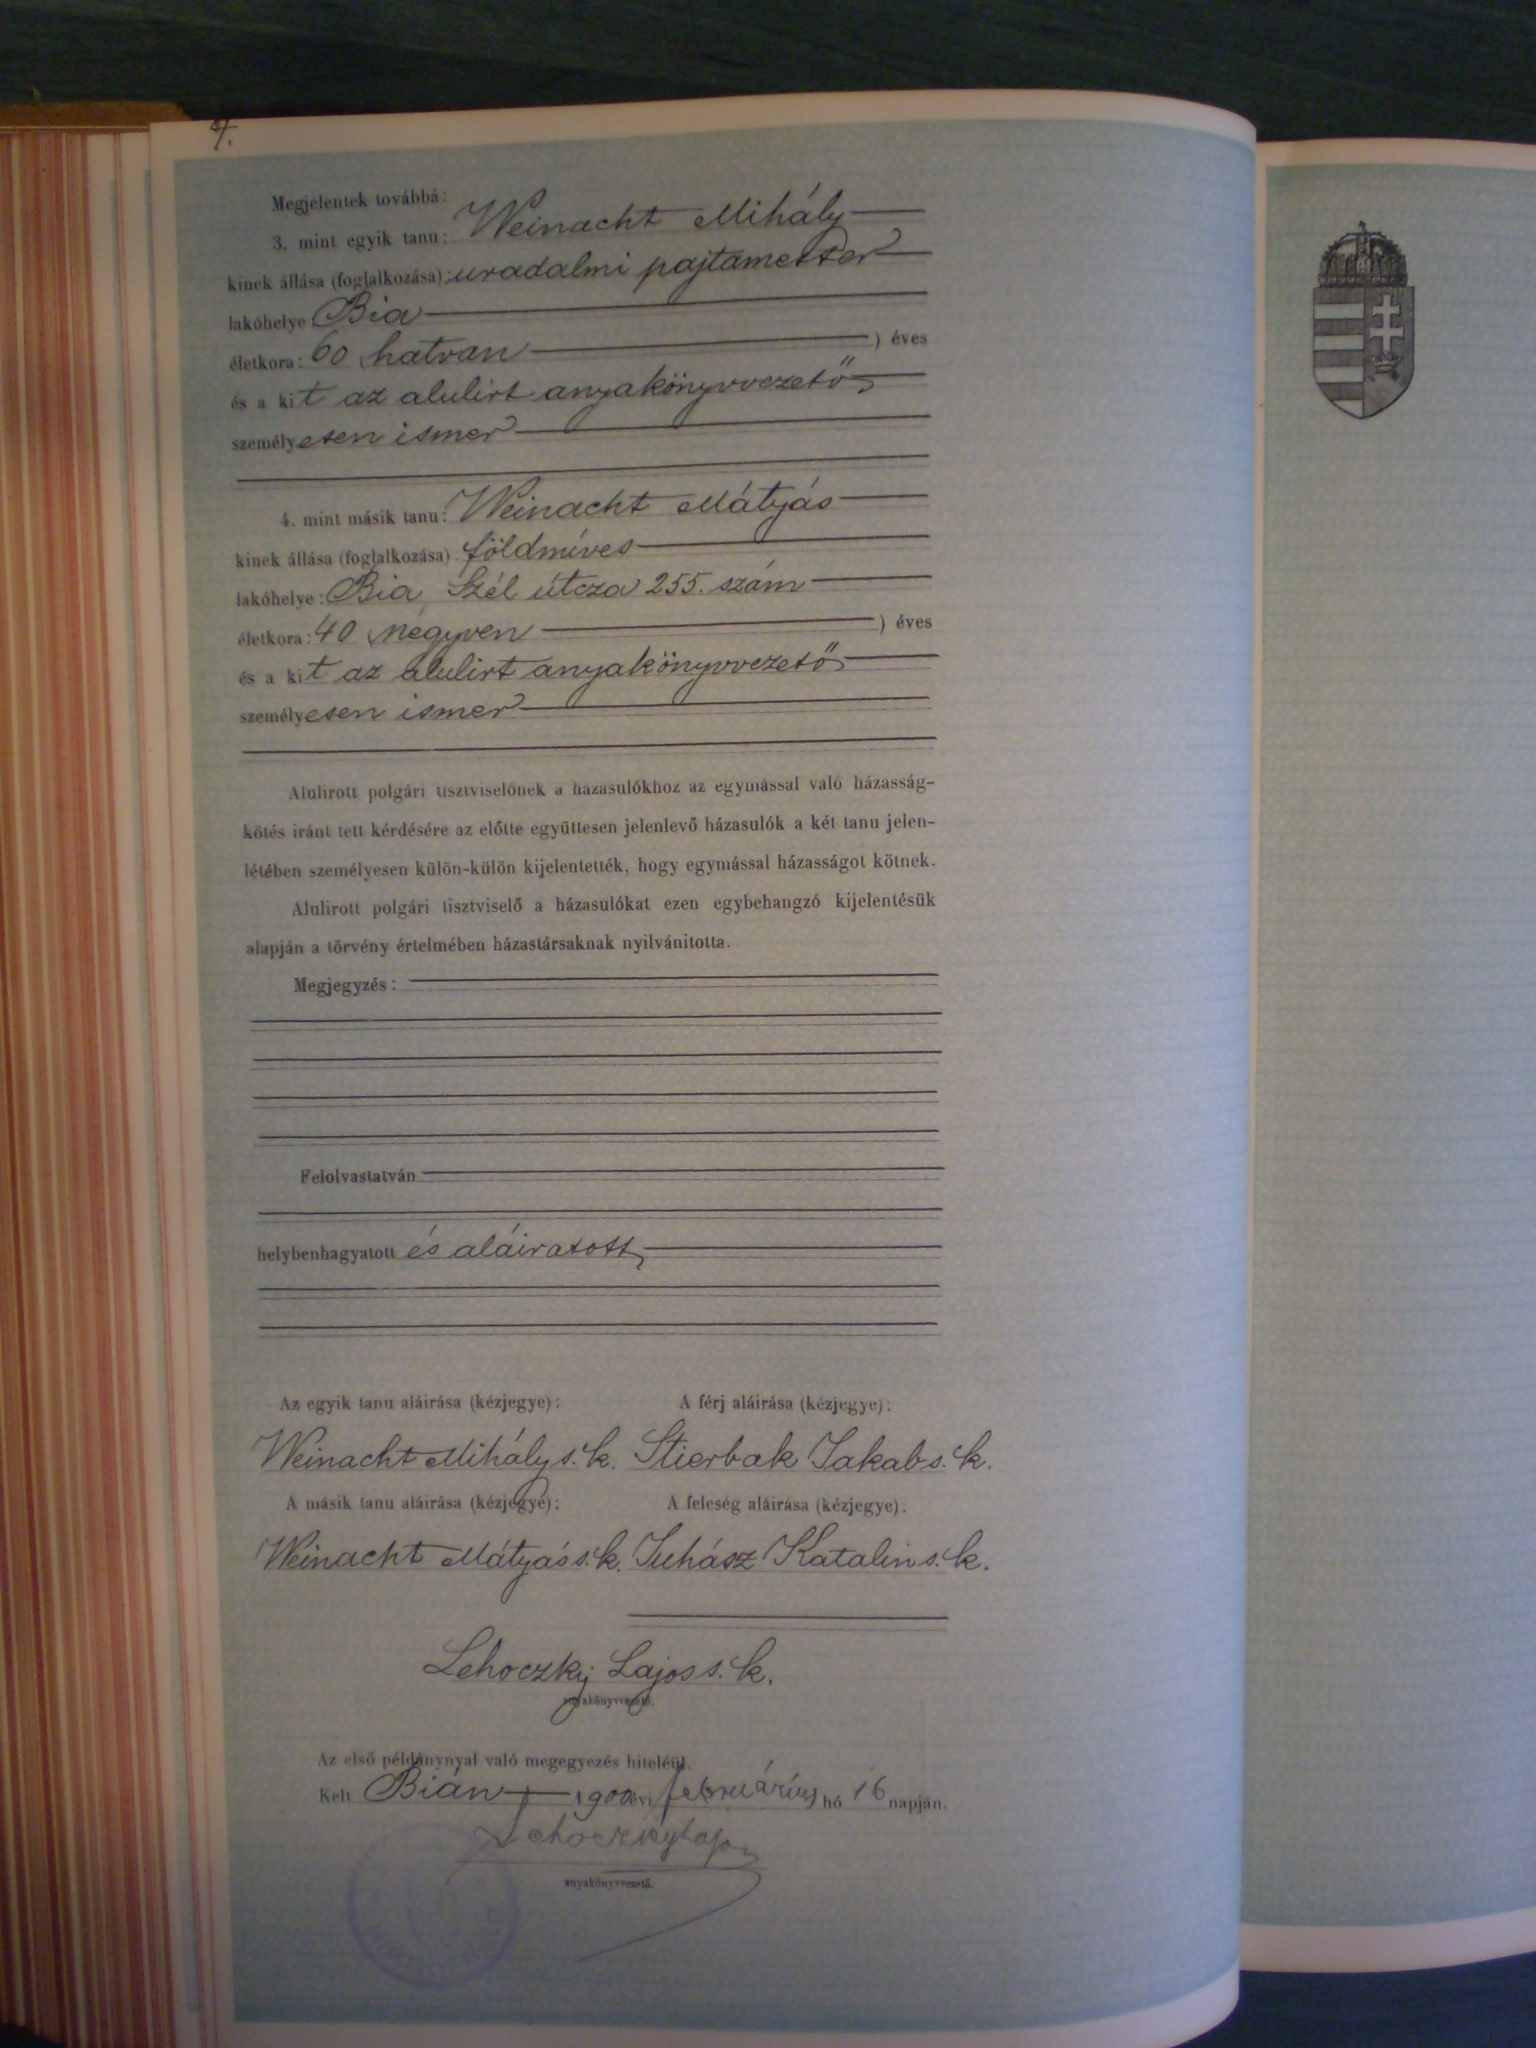 4.
Megjelentek továbbá:
3. mint egyik tanu: Weinacht Mihály
kinek állása (foglalkozása): uradalmi pajtamester
lakóhelye Bia
életkora: 60 hatvan ) éves
és a kit az alulirt anyakönyvvezető
személyesen ismer
4. mint másik tanu: Weinacht Mátyás
kinek állása (foglalkozása) földmíves
lakóhelye: Bia, Szél útcza 255. szám
életkora: 40 negyven ) éves
és a kit az alulirt anyakönyvvezető
személyesen ismer
Alulirott polgári tisztviselőnek a házasulókhoz az egymással való házasság-
kötés iránt tett kérdésére az előtte együttesen jelenlevő házasulók a két tanu jelen-
létében személyesen külön-külön kijelentették, hogy egymással házasságot kötnek.
Alulirott polgári tisztviselő a házasulókat ezen egybehangzó kijelentésük
alapján a törvény értelmében házastársaknak nyilvánitotta.
Megjegyzés:
Felolvastatván
helybenhagyatott és aláiratott,
Az egyik tanu aláirása (kézjegye): A férj aláirása (kézjegye):
Weinacht Mihály s. k. Stierbak Jakab s. k.
A másik tanu aláirása (kézjegye): A feleség aláirása (kézjegye).
Weinacht Mátyás s. k. Juhász Katalin s. k.
Lehoczky Lajos s. k.
anyakönyvvezető.
Az első példánynyal való megegyezés hiteléül.
Kelt Bián 1900 évi februárius hó 16 napján.
Lehoczky Lajos
anyakönyvvezető.